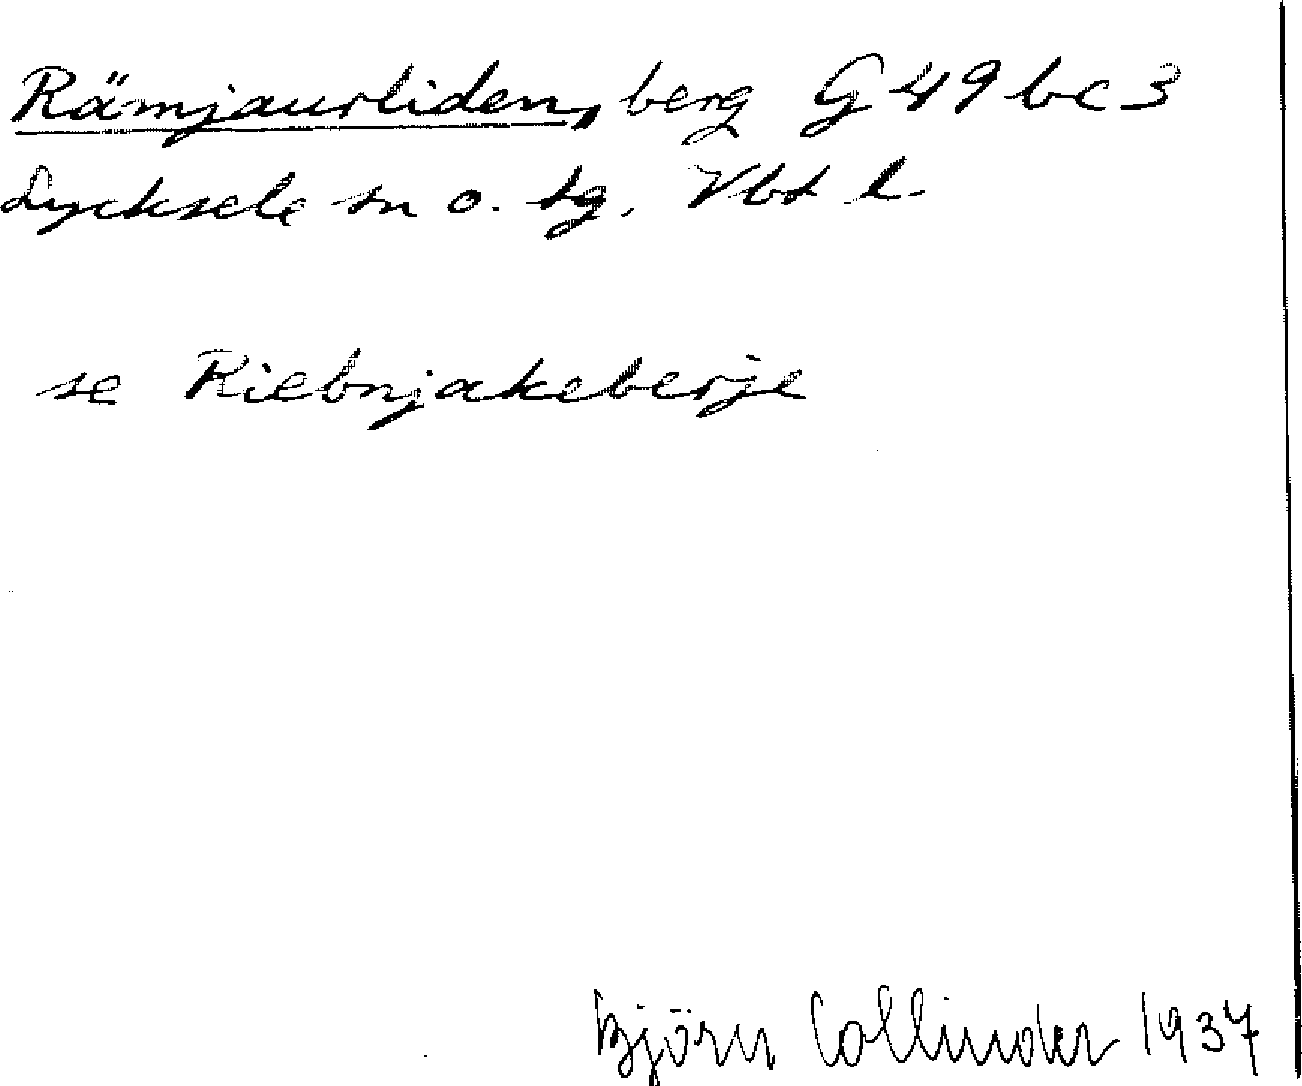 Rämjaurliden, berg G 49 bc 3
Lycksele sn o. tg. Vbt l.
se Riebnjakeberje
Björn Collinder 1937